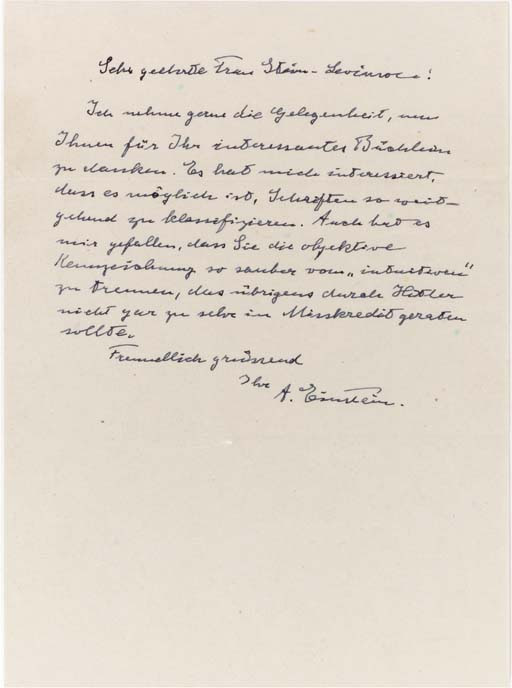 Sehr geehrte Frau Stein-Levinson!
Ich nehme gerne die Gelegenheit, um
Ihnen für Ihr interessantes Büchlein
zu danken. Es hat mich interessiert,
dass es möglich ist, Schriften so weit-
gehend zu klassifizieren. Auch hat es
mir gefallen, dass Sie die objektive
Kennzeichnung so sauber vom „intuitiven"
zu trennen, das übrigens durch Hitler
nicht gar zu sehr in Misskredit geraten
sollte.
Freundlich grüssend
Ihr
A. Einstein.